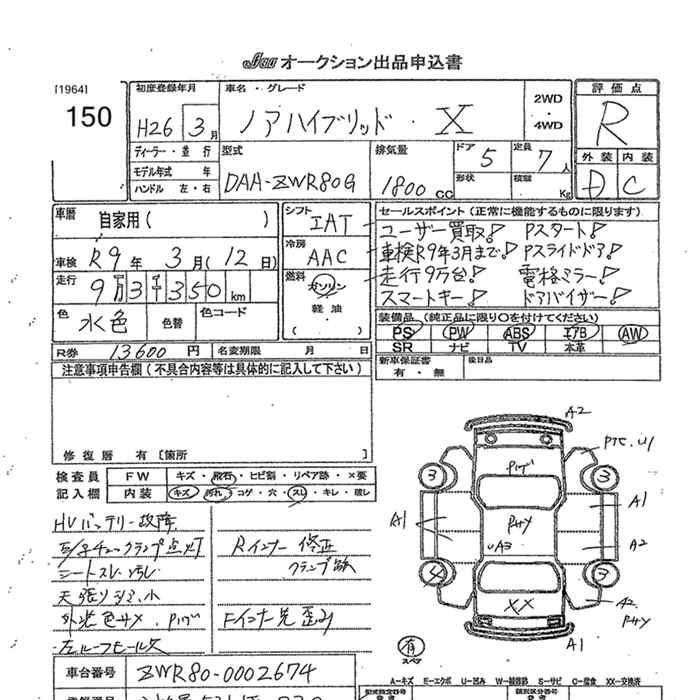 JAA オークション出品申込書
[1964]
150
初度登録年月
H26 3月
車名・グレード
ノアハイブリッド・X
2WD
・
4WD
評価点
R
ディーラー・並行
モデル年式 年
ハンドル 左・右
型式
DAA-ZWR80G
排気量
1800cc
ドア
5
定員
7人
形状
積載
Kg
外装 内装
D C
車歴
自家用( )
シフト
IAT
冷房
AAC
燃料
ガソリン
・
軽油
( )
車検 R9年 3月(12日)
走行
9万3千350km
色
水色
色替
色コード
セールスポイント(正常に機能するものに限ります)
ユーザー買取! Pスタート!
車検R9年3月まで! Pスライドドア!
走行9万台! 電格ミラー!
スマートキー! ドアバイザー!
装備品(純正品に限り○を付けてください)
PS PW ABS エアB AW
SR ナビ TV 本革
R券 13600円
名変期限 月 日
新車保証書
有・無
後日品
注意事項申告欄(不具合内容等は具体的に記入して下さい)
修復歴 有[箇所 ]
検査員
記入欄
FW キズ・飛石・ヒビ割・リペア跡・×要
内装 キズ・汚れ・コゲ・穴・スレ・キレ・破レ
HVバッテリー故障
チェックランプ点灯
シートスレ、汚レ
天張りシミ小
外装色サメ、Pカケ
左ルーフモール欠
Rインナー修正
クランプ跡
Fインナー先歪み
A2
3
3
A1
A1
A2
3
4
XX
A2
A1
有
スペア
A-キズ E-エクボ U-凹み W-補修跡 S-サビ C-腐食 XX-交換済
車台番号
ZWR80-0002674